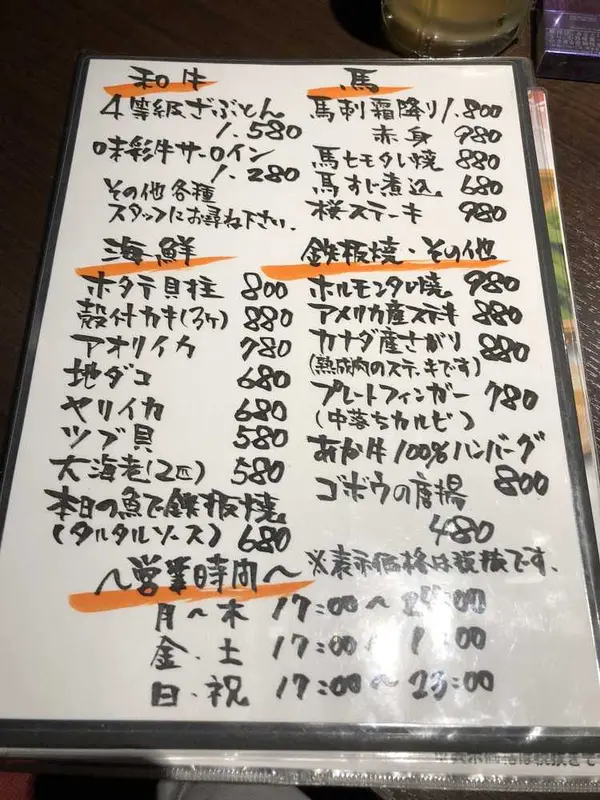 和牛
4等級ざぶとん
1.580
味彩牛サーロイン
1.280
その他各種
スタッフにお尋ね下さい.
海鮮
ホタテ貝柱 800
殻付カキ(3ヶ) 880
アオリイカ 780
地ダコ 680
ヤリイカ 680
ツブ貝 580
大海老(2匹) 580
本日の魚で鉄板焼
(タルタルソース) 680
馬
馬刺霜降り 1.800
赤身 980
馬ヒモタレ焼 880
馬すじ煮込 680
桜ステーキ 980
鉄板焼・その他
ホルモンタレ焼 980
アメリカ産ステキ 880
カナダ産さがり 880
(熟成肉のステーキです)
プレートフィンガー 780
(中落ちカルビ)
あか牛100%ハンバーグ
800
ゴボウの唐揚
480
※表示価格は税抜です.
〜営業時間〜
月〜木 17:00〜24:00
金.土 17:00〜1:00
日.祝 17:00〜23:00